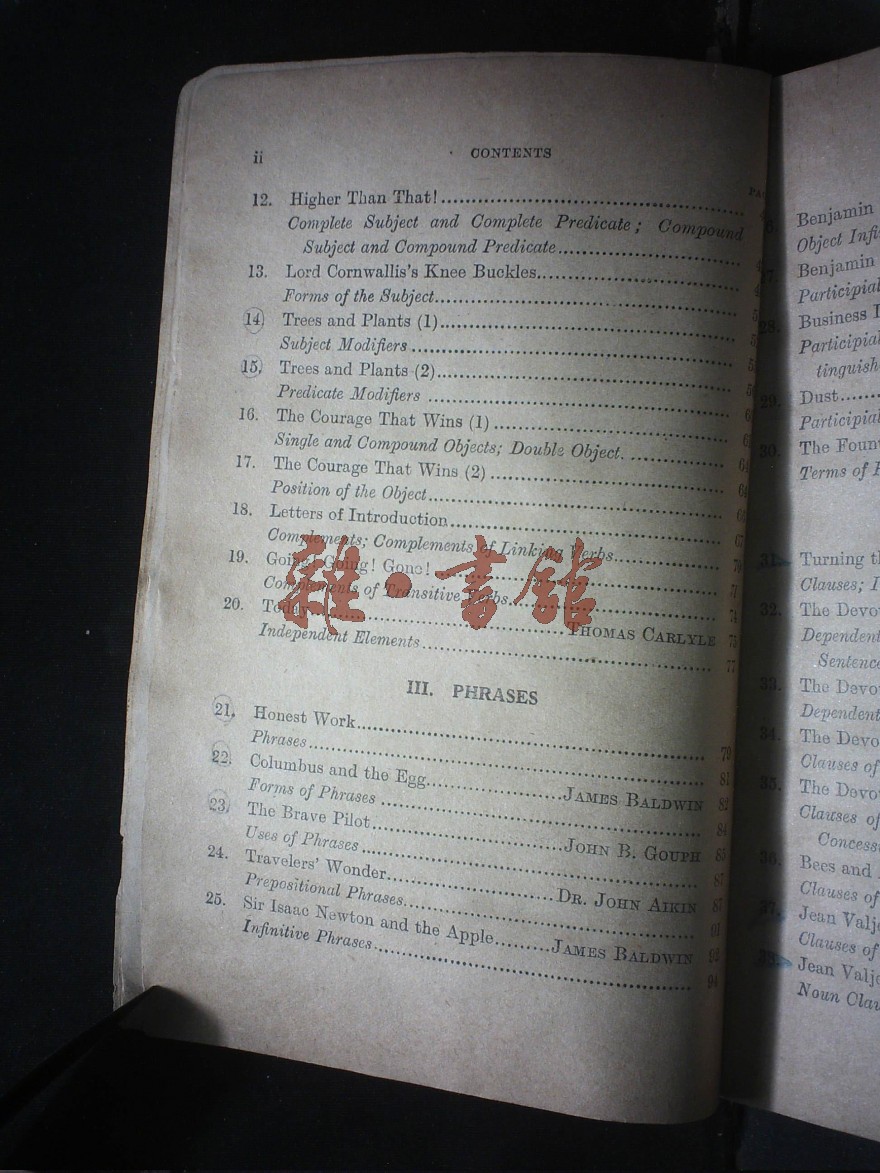 ii
CONTENTS
12. Higher Than That!
Complete Subject and Complete Predicate; Compound
Subject and Compound Predicate
13. Lord Cornwallis's Knee Buckles
Forms of the Subject
14 Trees and Plants (1)
Subject Modifiers
15. Trees and Plants (2)
Predicate Modifiers
16. The Courage That Wins (1)
Single and Compound Objects; Double Object.
17. The Courage That Wins (2)
Position of the Object
18. Letters of Introduction
Complements; Complements of Linking Verbs
19. Going! Going! Gone!
Complements of Transitive Verbs 74
20. Today THOMAS CARLYLE 75
Independent Elements 77
III. PHRASES
21. Honest Work 79
Phrases 81
22. Columbus and the Egg JAMES BALDWIN 82
Forms of Phrases 84
23. The Brave Pilot JOHN B. GOUPH 85
Uses of Phrases 87
24. Travelers' Wonder DR. JOHN AIKIN 87
Prepositional Phrases 91
25. Sir Isaac Newton and the Apple JAMES BALDWIN 93
Infinitive Phrases 94
雜·書館
Benjamin
Object
Benjamin
Participial
28. Business
Participial
29. Dust
Participial
30. The
Terms of
31. Turning
Clauses;
32. The
Dependent
33. The
Dependent
34. The
Clauses of
35. The
Clauses of
36. Bees and
Clauses of
37. Jean
Clauses of
38. Jean
Noun